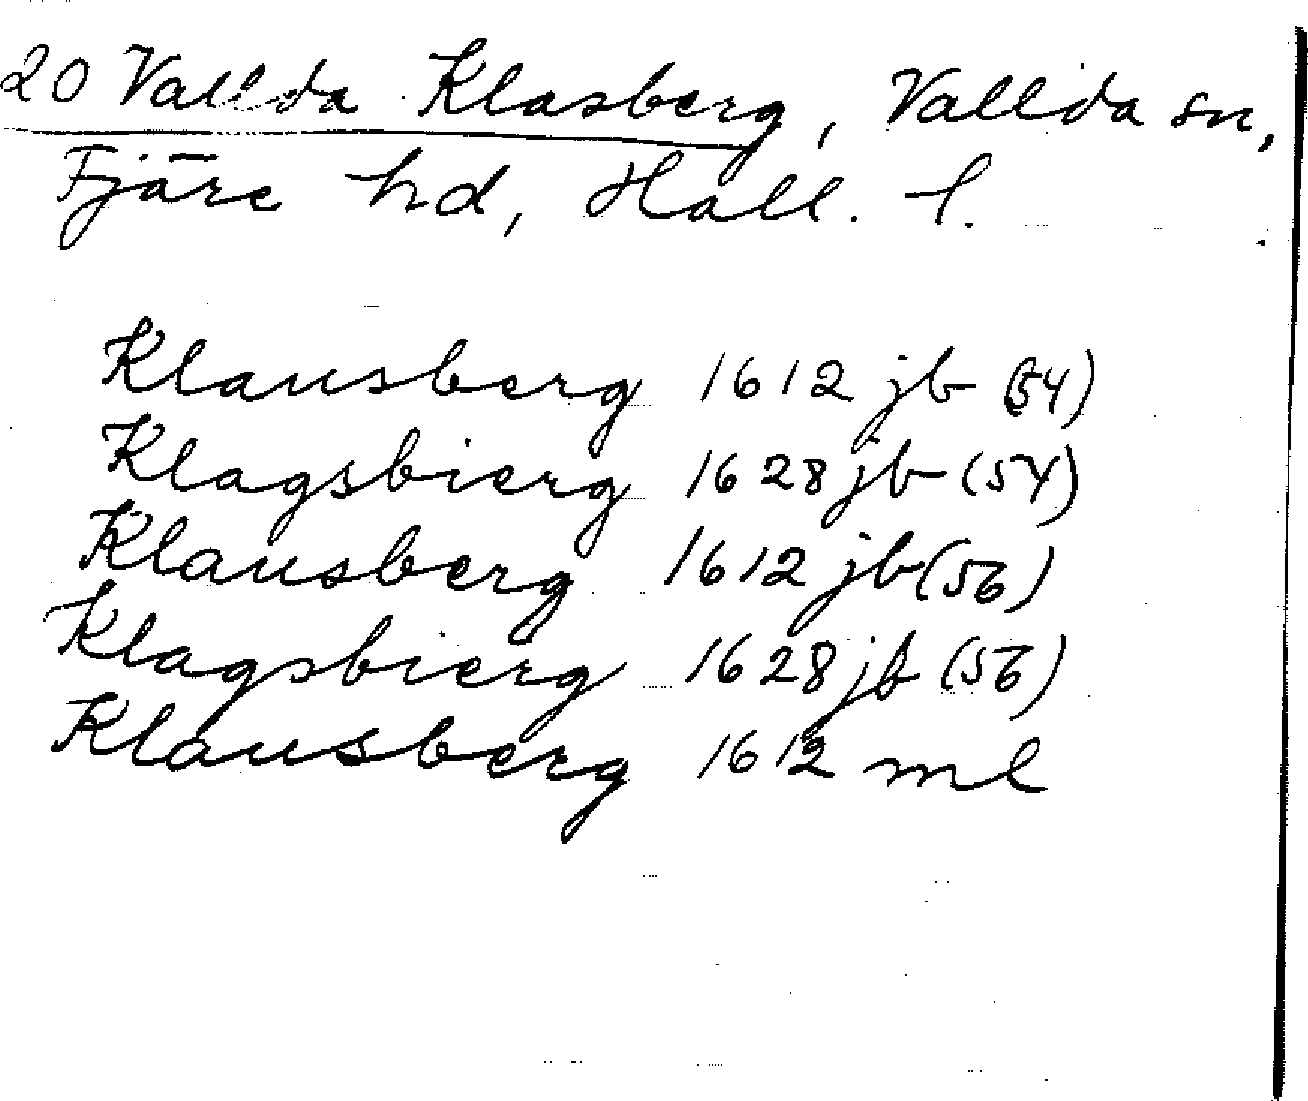 20 Vallda Klasberg, Vallda sn,
Fjäre hd, Hall. l.
Klausberg 1612 jb (54)
Klagsbierg 1628 jb (54)
Klausberg 1612 jb (56)
Klagsbierg 1628 jb (56)
Klausberg 1612 ml